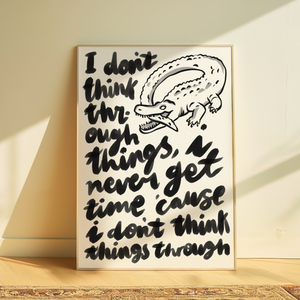 I don't
think
thr-
ough
things, i
never get
time cause
i don't think
things through